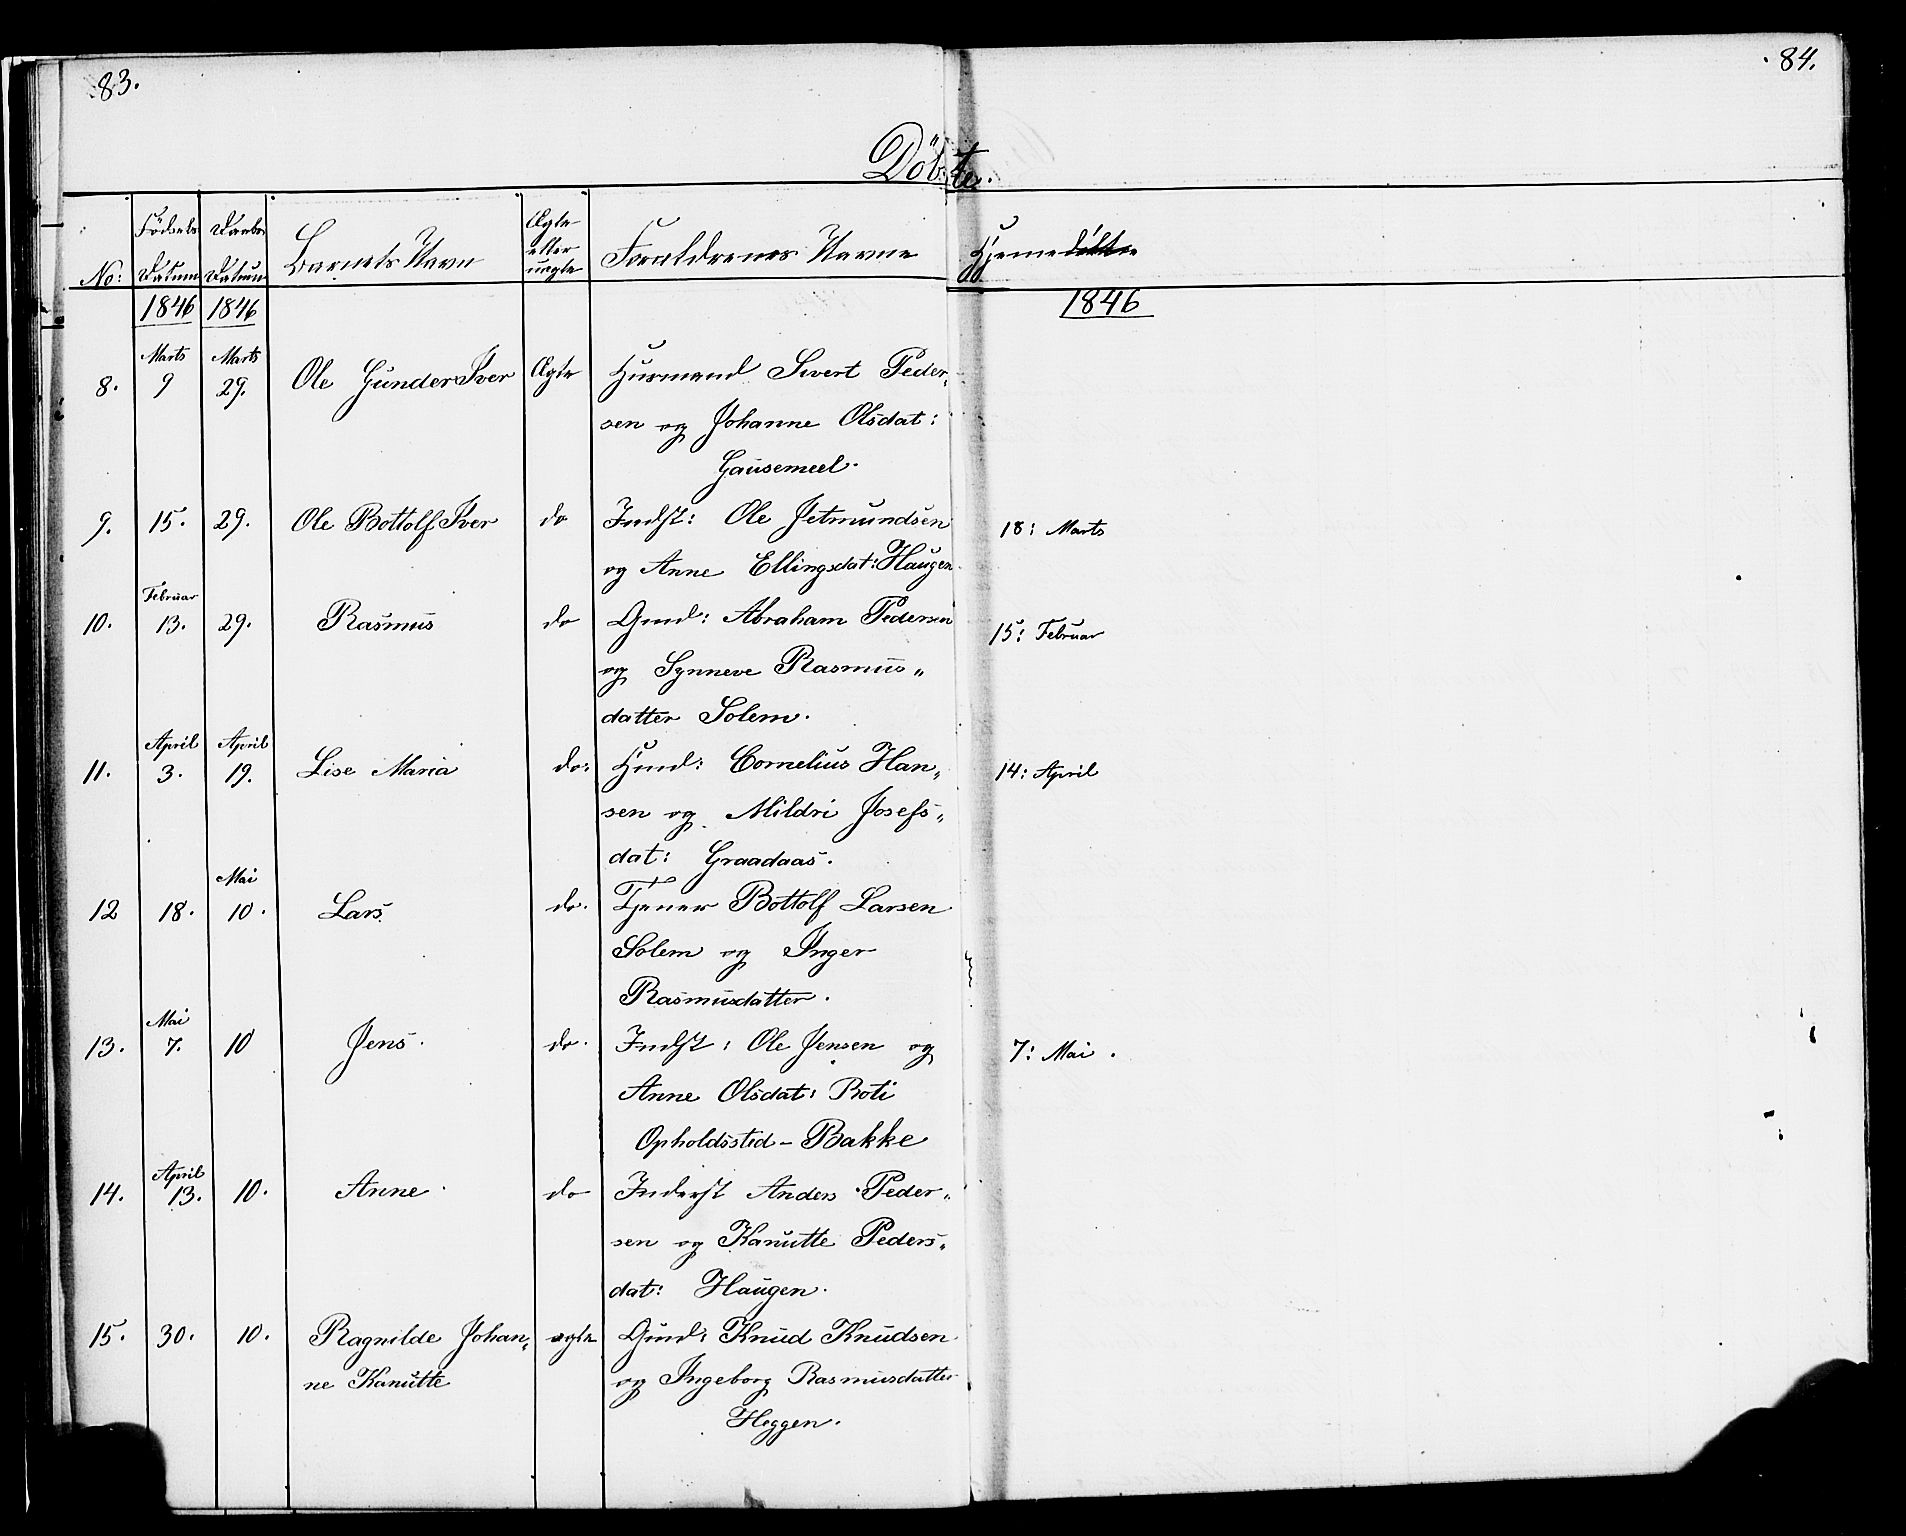 83.
84.
Döbte.
No:
Födsels Datum
Daabs Datum
Barnets Navn
Ægte eller uægte
Forældrenes Navne
Hjemedöbte
1846 1846 1846
Marts Marts
8. 9 29. Ole Gunder Iver Ægte Husmand Sivert Peder„
sen og Johanne Olsdat:
Gausemeel.
9. 15. 29. Ole Bottolf Iver do Indst: Ole Jetmundsen 18: Marts
og Anne Ellingsdat: Haugen
Februar
10. 13. 29. Rasmus do Gmd: Abraham Pedersen 15: Februar
og Synneve Rasmus„
datter Solem.
April April
11. 3. 19. Lise Maria do: Hmd: Cornelius Han„ 14: April
sen og Mildri Josefs„
dat: Graadaas.
Mai
12 18. 10. Lars. do. Tjener Bottolf Larsen
Solem og Inger
Rasmusdatter.
Mai
13. 7. 10 Jens. do. Indst: Ole Jensen og 7: Mai.
Anne Olsdat: Roti
Opholdssted - Bakke
April
14. 13. 10. Anne. do Inderst Anders Peder„
sen og Kanutte Peders„
dat: Haugen.
15. 30. 10. Ragnilde Johan„ ægte Gmd: Knud Knudsen
ne Kanutte og Ingeborg Rasmusdatter
Heggen.